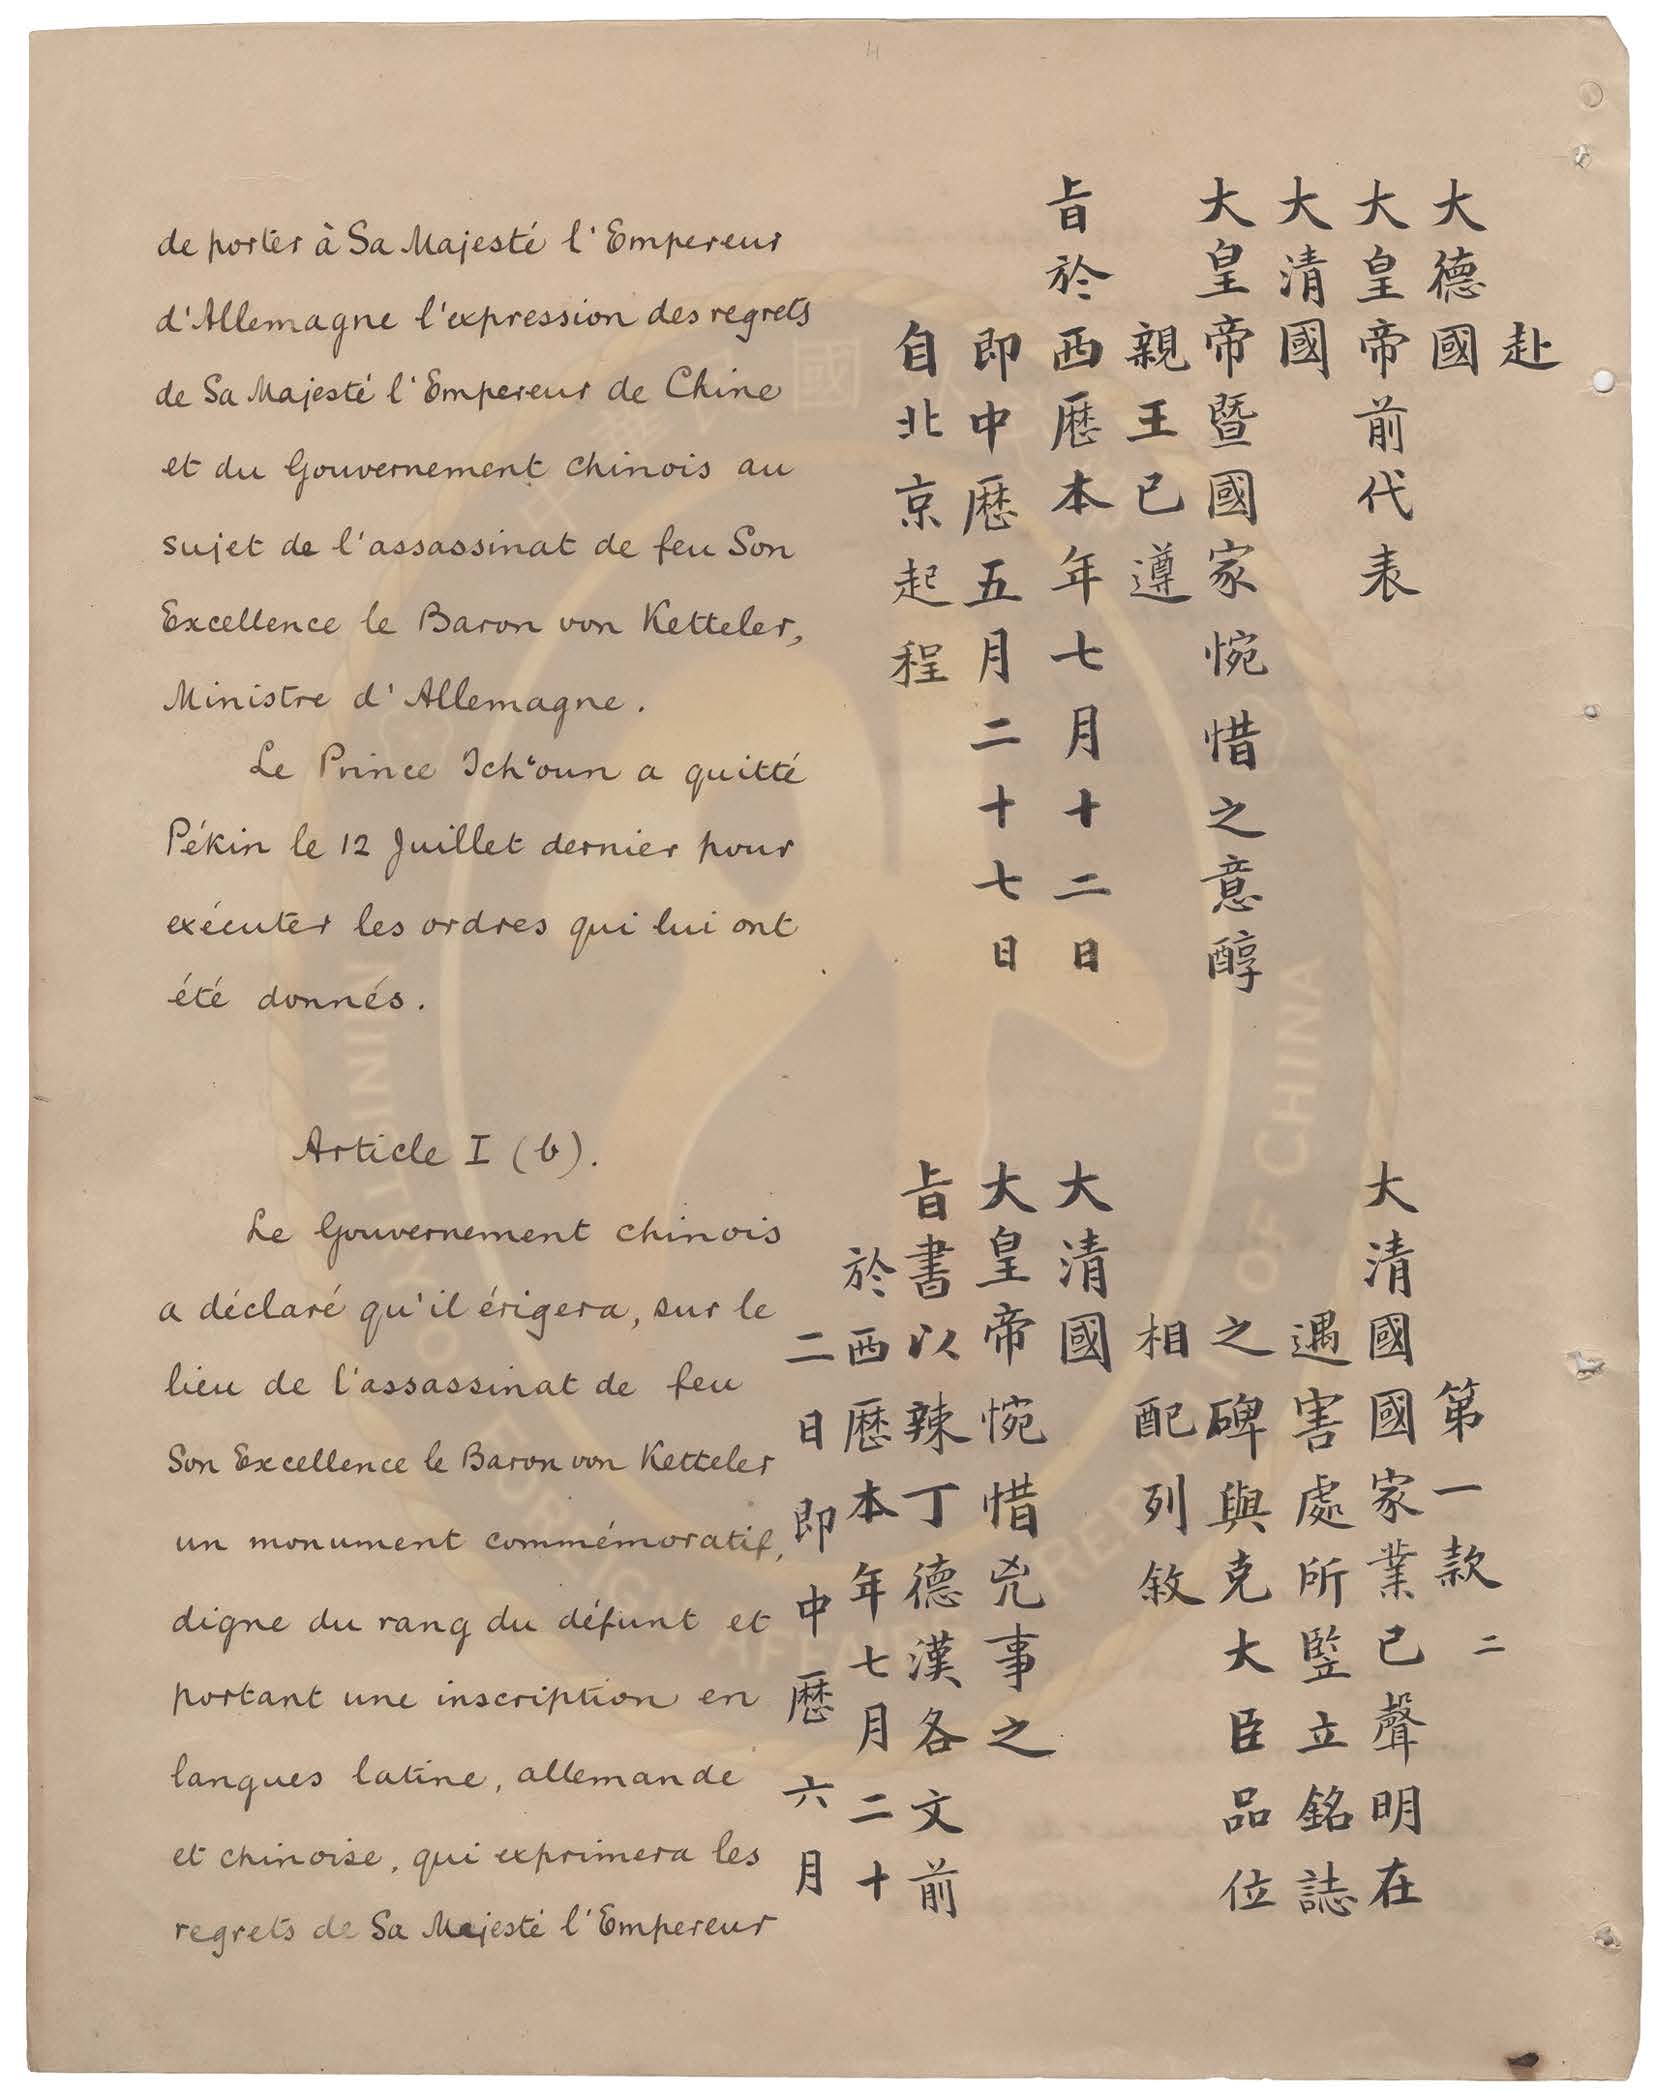 de porter à Sa Majesté l'Empereur
d'Allemagne l'expression des regrets
de Sa Majesté l'Empereur de Chine
et du Gouvernement chinois au
sujet de l'assassinat de feu Son
Excellence le Baron von Ketteler,
Ministre d'Allemagne.
Le Prince Tch'oun a quitté
Pékin le 12 Juillet dernier pour
exécuter les ordres qui lui ont
été donnés.
Article I (b).
Le Gouvernement chinois
a déclaré qu'il érigera, sur le
lieu de l'assassinat de feu
Son Excellence le Baron von Ketteler
un monument commémoratif,
digne du rang du défunt et
portant une inscription en
langues latine, allemande
et chinoise, qui exprimera les
regrets de Sa Majesté l'Empereur
赴
大德國
大皇帝前代表
大清國
大皇帝暨國家惋惜之意醇
親王已遵
旨於西厯本年七月十二日
即中厯五月二十七日
自北京起程
第一款 二
大清國國家業已聲明在
遇害處所竪立銘誌
之碑與克大臣品位
相配列敘
大清國
大皇帝惋惜兇事之
旨書以辣丁德漢各文前
於西厯本年七月二十
二日即中厯六月